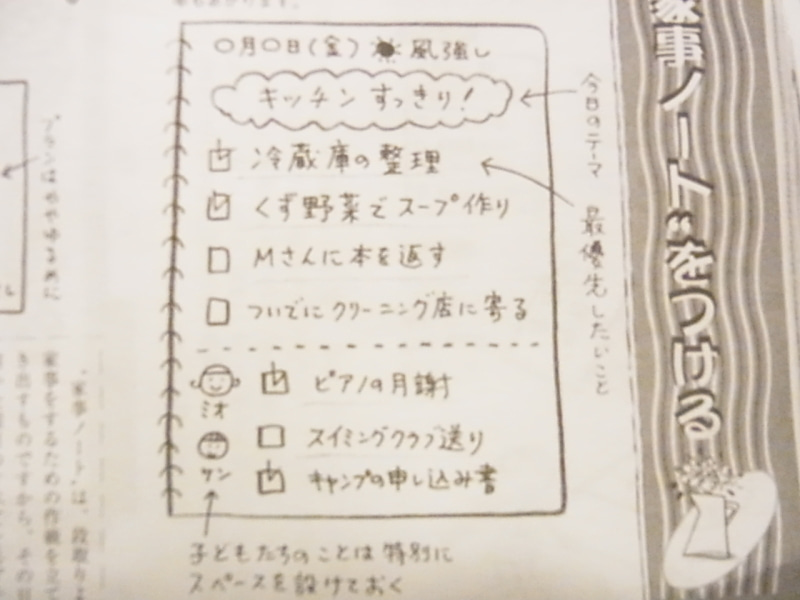 家事ノート"をつける
〇月〇日(金) 風強し
キッチンすっきり!
今日のテーマ
冷蔵庫の整理
くず野菜でスープ作り
Mさんに本を返す
ついでにクリーニング店に寄る
最優先したいこと
ピアノの月謝
ミオ
スイミングクラブ送り
ケン
キャンプの申し込み書
子どもたちのことは特別に
スペースを設けておく
プランはややゆるめに
"家事ノート"は、段取り
家事をするための作戦を立て
き出すものですから、その日